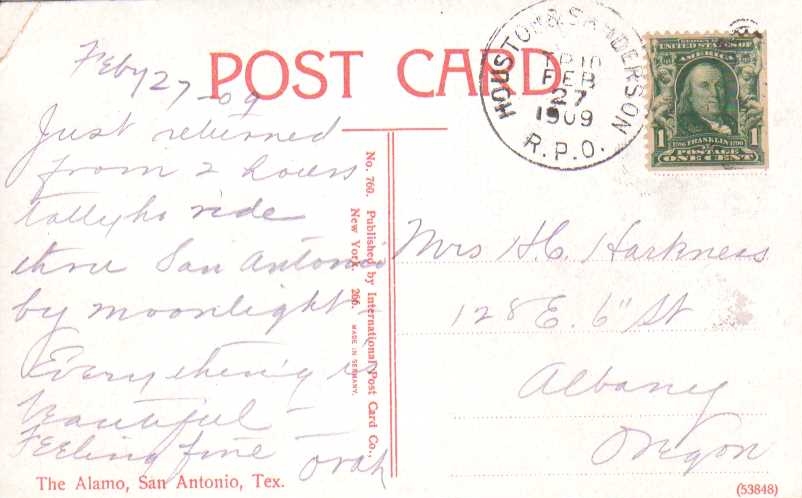 POST CARD
Feby 27-09
Just returned
from 2 hours
tallyho ride
thru San Antonio
by moonlight
Everything is
beautiful —
Feeling fine —
Orah
The Alamo, San Antonio, Tex.
No. 760. Published by International Post Card Co.,
New York. 266. MADE IN GERMANY.
HOUSTON & SANDERSON
FEB
27
1909
R.P.O.
UNITED STATES OF
AMERICA
1 FRANKLIN 1
POSTAGE
ONE CENT
Mrs H.C. Harkness
128 E. 6" St
Albany
Oregon
(53848)